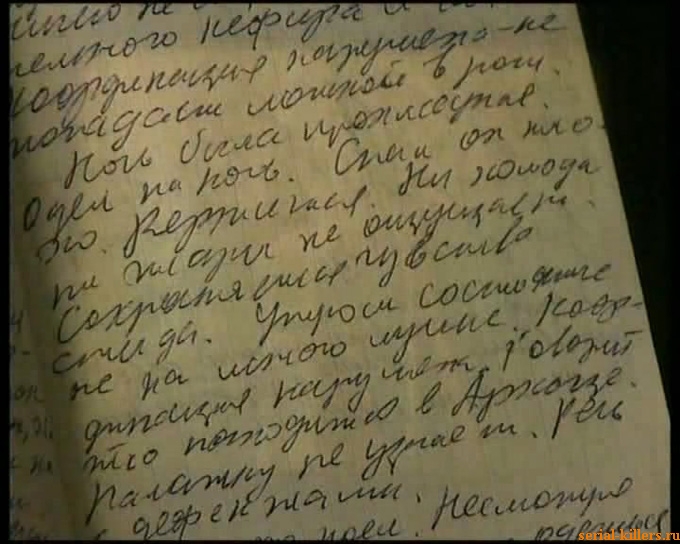 не
нежного кефира и
Координация нарушена - не
попадает ложкой в рот.
Ночь была прохладная.
Одел на ночь. Спал он пло-
хо. Вертелся. Ни холода
ни жары не ощущает.
Сохраняется чувство
стыда. Утром состояние
не на много лучше. Коор-
динация нарушена. Говорит
что находится в Архызе.
Палатку не узнает. Речь
с дефектами. Несмотря
поел.
serial-killers.ru